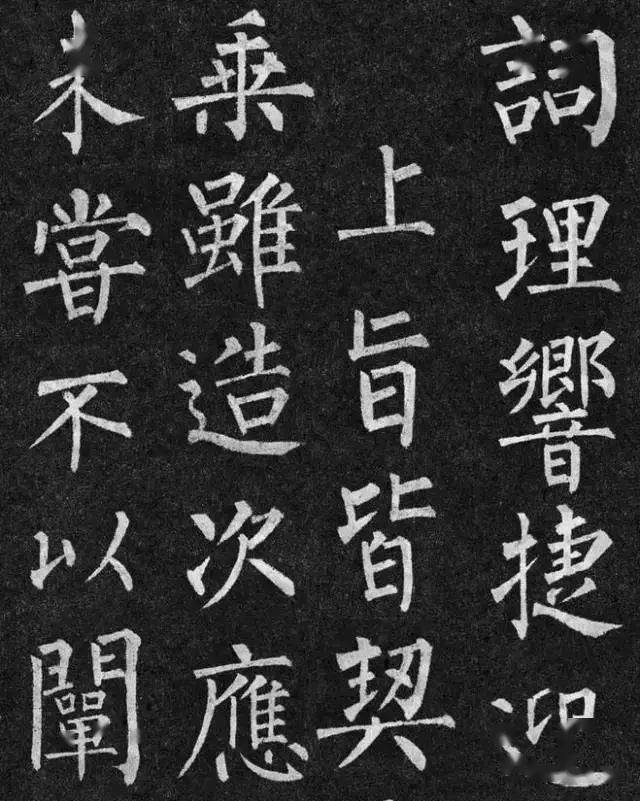 詞理響捷迎
上旨皆契
乗雖造次應
未嘗不以闡